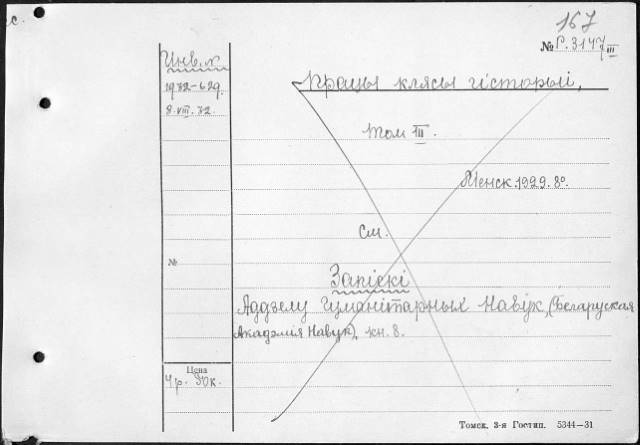 167
№ Р.3147 III
Инв. №
1932-629.
8.VIII.32.
Працы клясы гісторыі,
том III.
Менск. 1929. 8°.
См.
№
Запіскі
Аддзелу Гуманітарных Навук, (Беларуская
Акадэмія Навук), кн. 8.
Цена
4 р. 50 к.
Томск, 3-я Гостип. 5344—31